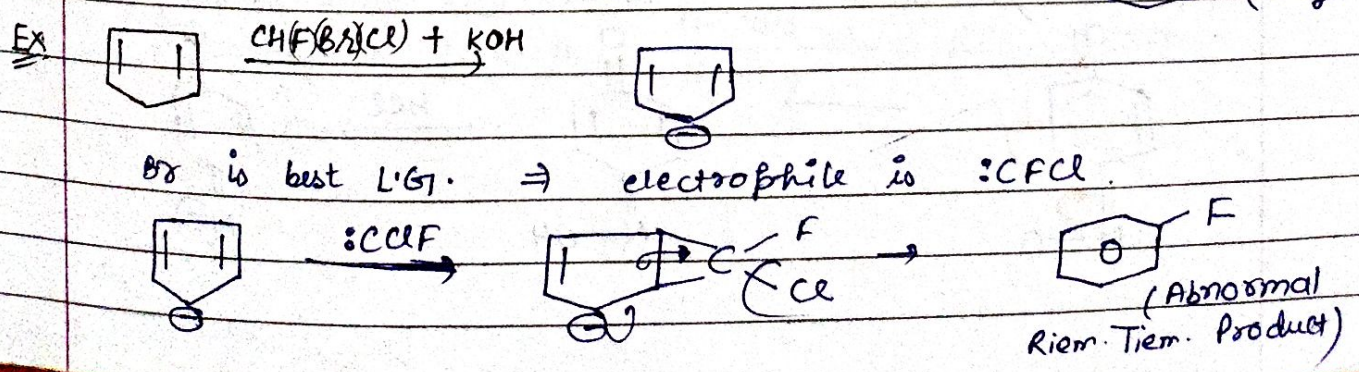 Ex CH(F)(Br)(Cl) + KOH
⊖
Br is best L.G. ⇒ electrophile is :CFCl.
:CClF C F Cl → F
⊖ ⊖
(Abnormal
Riem. Tiem. Product)